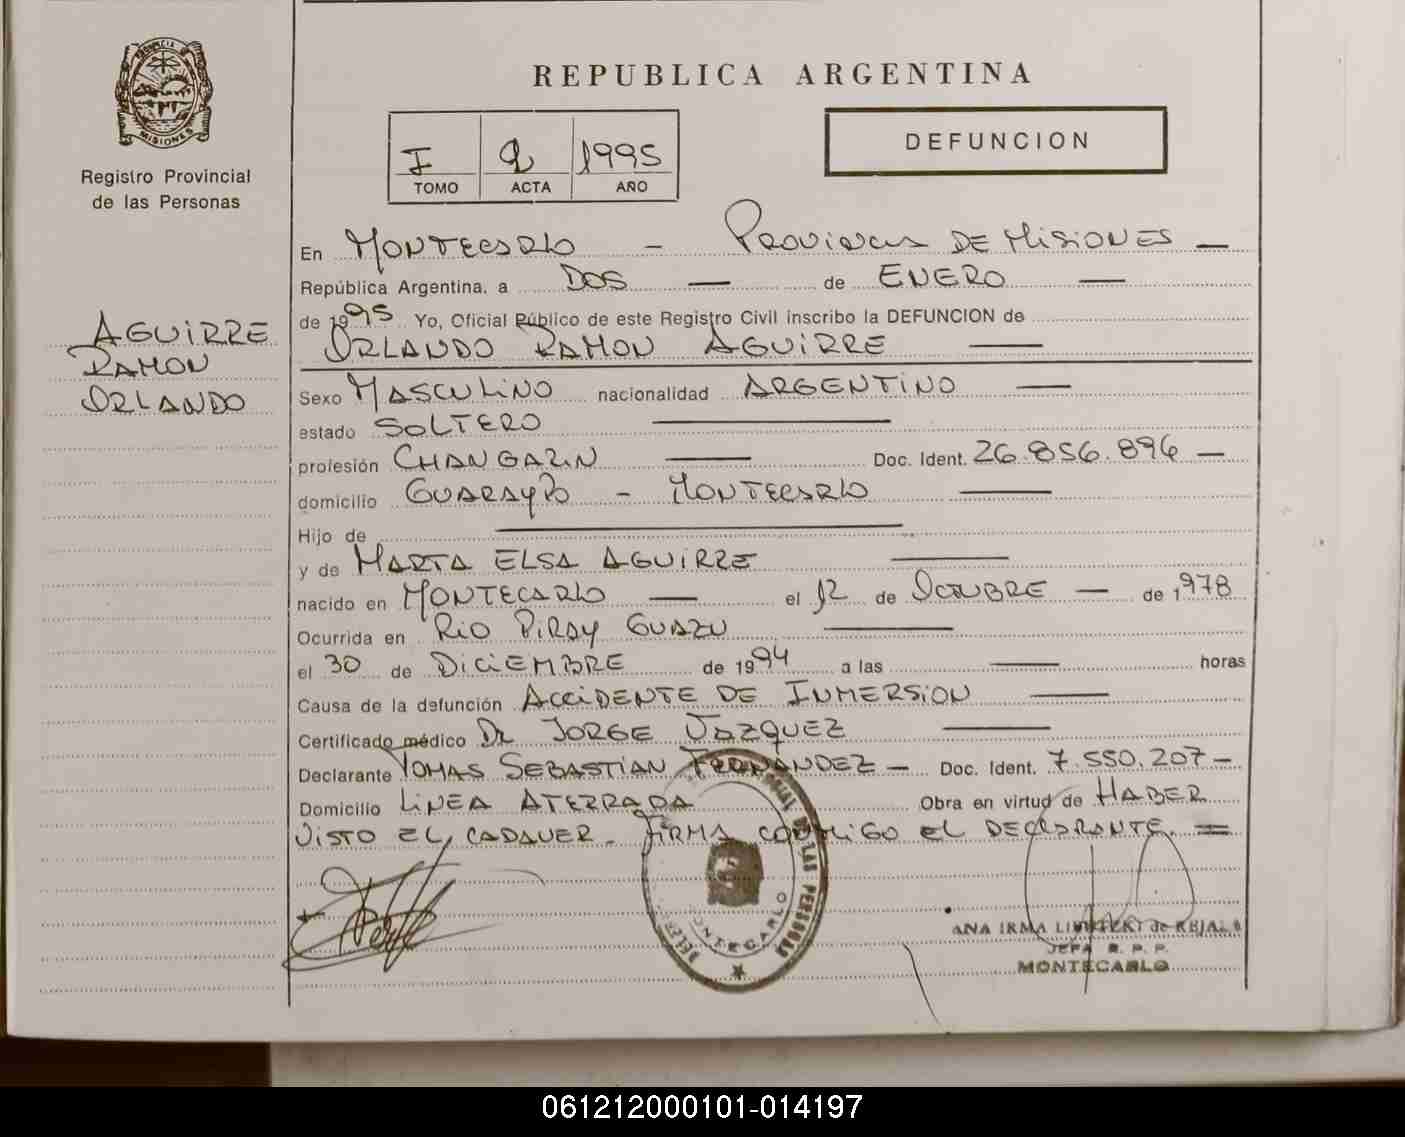 PROVINCIA DE
MISIONES
Registro Provincial
de las Personas
AGUIRRE
RAMON
ORLANDO
REPUBLICA ARGENTINA
I 2 1995
TOMO ACTA AÑO
DEFUNCION
En MONTECARLO - PROVINCIA DE MISIONES —
República Argentina, a DOS — de ENERO —
de 1995 Yo, Oficial Público de este Registro Civil inscribo la DEFUNCION de
ORLANDO RAMON AGUIRRE —
Sexo MASCULINO nacionalidad ARGENTINO —
estado SOLTERO —
profesión CHANGARIN — Doc. Ident. 26.856.896 —
domicilio GUARAYPO - MONTECARLO —
Hijo de —
y de MARTA ELSA AGUIRRE —
nacido en MONTECARLO — el 12 de OCTUBRE — de 1978
Ocurrida en RIO PIRAY GUAZU —
el 30 de DICIEMBRE de 1994 a las — horas
Causa de la defunción ACCIDENTE DE INMERSION —
Certificado médico Dr JORGE VAZQUEZ —
Declarante TOMAS SEBASTIAN FERNANDEZ — Doc. Ident. 7.550.207 —
Domicilio LINEA ATERRADA Obra en virtud de HABER
VISTO EL CADAVER. FIRMA CONMIGO EL DECLARANTE. =
DE LAS PERSONAS
MONTECARLO
ANA IRMA de REJALA
JEFA R. P. P.
MONTECARLO
061212000101-014197